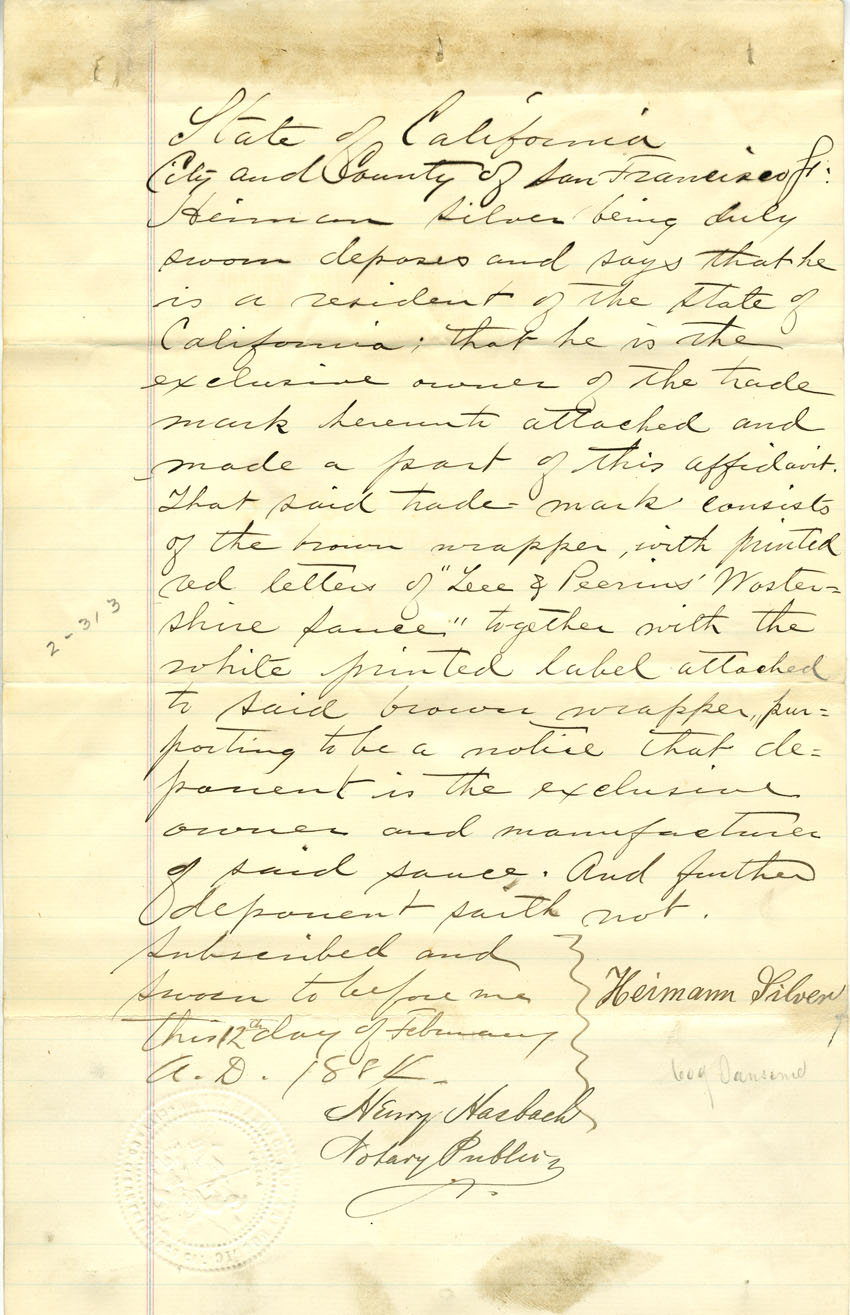 State of California
City and County of San Francisco
Heimann Silver being duly
sworn deposes and says that he
is a resident of the State of
California; that he is the
exclusive owner of the trade
mark hereunto attached and
made a part of this affidavit.
That said trade=mark consists
of the brown wrapper, with printed
red letters of "Lee & Peerins' Woster=
shire sauce" together with the
white printed label attached
to said brown wrapper, pur=
porting to be a notice that de=
ponent is the exclusive
owner and manufacturer
of said sauce. And further
deponent saith not.
Subscribed and
sworn to before me
this 12th day of February
A.D. 1884
Heimann Silver
Henry Hasbach
Notary Public
2-313